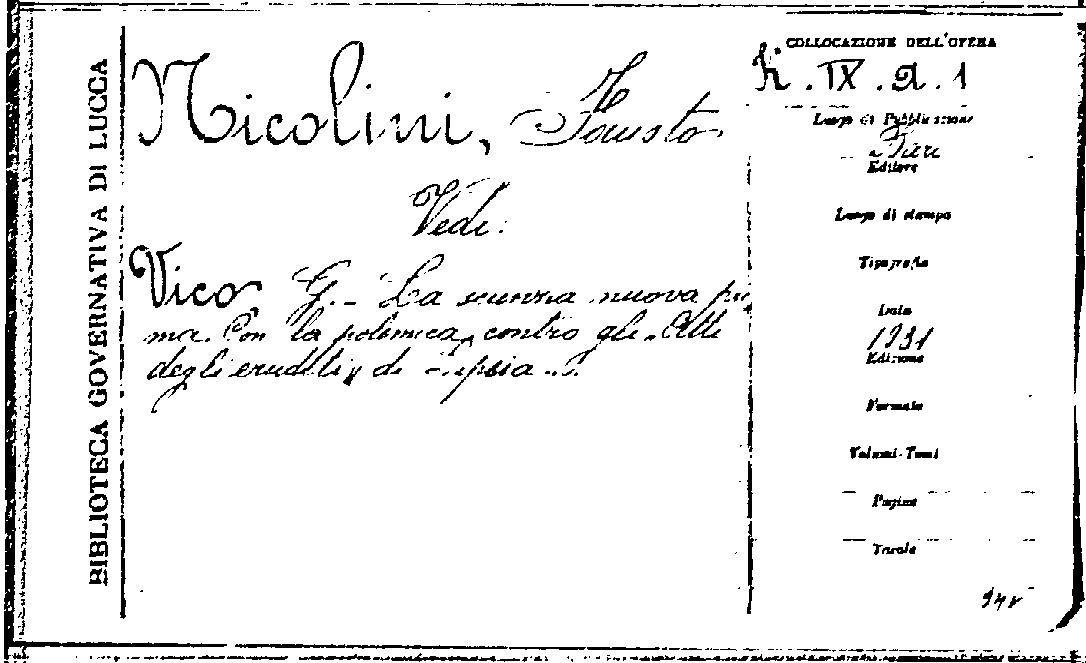 BIBLIOTECA GOVERNATIVA DI LUCCA
Nicolini, Fausto
Vedi:
Vico G. - La scienza nuova pri
ma. Con la polemica contro gli "Atti
degli eruditi" di Lipsia ...
COLLOCAZIONE DELL'OPERA
IX. 2. 1
Luogo di Pubblicazione
Bari
Editore
Luogo di stampa
Tipografia
Data
1931
Edizione
Formato
Volumi-Tomi
Pagine
Tavole